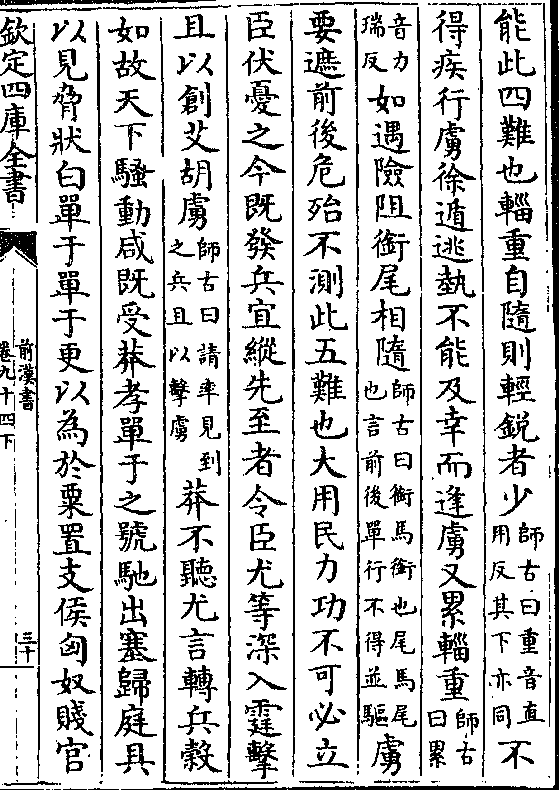 能此四難也輜重自隨則輕銳者少師古曰重音直用反其下亦同不
得疾行虜徐遁逃埶不能及幸而逢虜又累輜重師古曰累
音力瑞反如遇險阻銜尾相隨師古曰銜馬銜也尾馬尾也言前後單行不得並驅虜
要遮前後危殆不測此五難也大用民力功不可必立
臣伏憂之今既發兵宜縱先至者令臣尤等深入霆擊
且以創艾胡虜師古曰請率見到之兵且以擊虜莽不聽尤言轉兵糓
如故天下騷動咸既受莽孝單于之號馳出塞歸庭具
以見脅狀白單于單于更以為於粟置支侯匈奴賤官
欽定四庫全書
前漢書
卷九十四下
三十